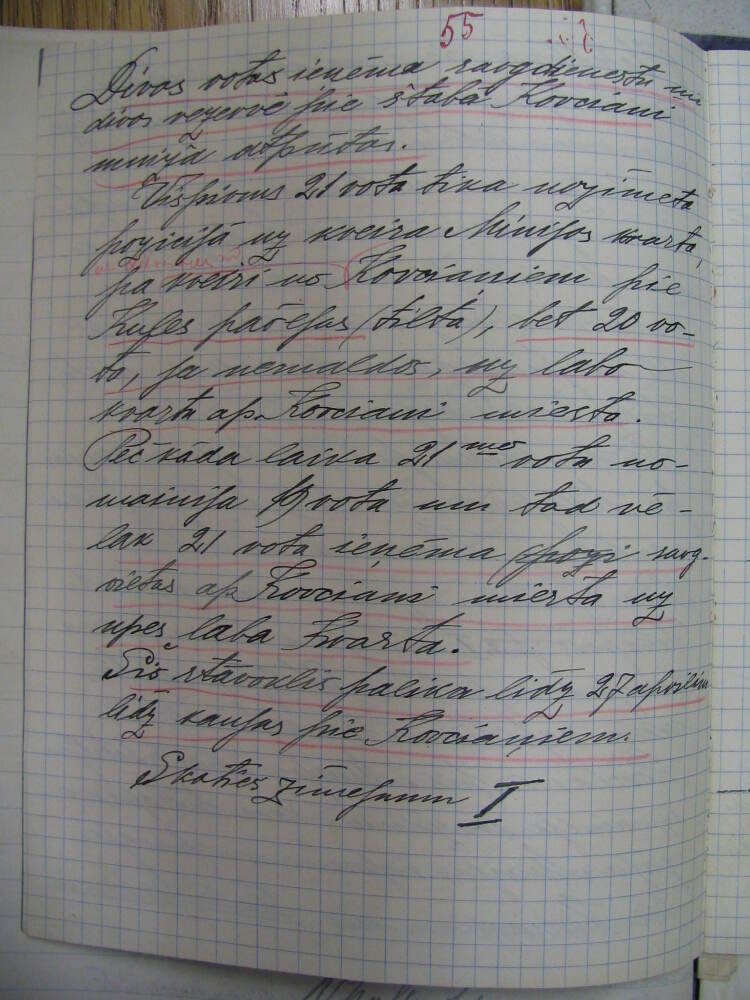 55
Divas rotas ieņēma sargdienestu un
divas rezervē pie štaba Korciani
muižā atpūtās.
Vispirms 21 rota tika nozīmēta
pozicijā uz kreisa Minijas krasta,
pa kreisi no Korcianiem pie
Kuļes pārejas (tilta), bet 20 ro-
ta, ja nemaldos, uz laba
krasta ap Korciani miesta.
Pēc kāda laika 21mo rotu no-
mainija 19 rota un tad vē-
lak 21 rota ieņēma pozi sarg-
vietas ap Korciani miesta uz
upes laba krasta.
Šis stāvoklis palika līdz 27 aprilim
līdz kaujas pie Korcianiem.
Skaties zīmejumu I